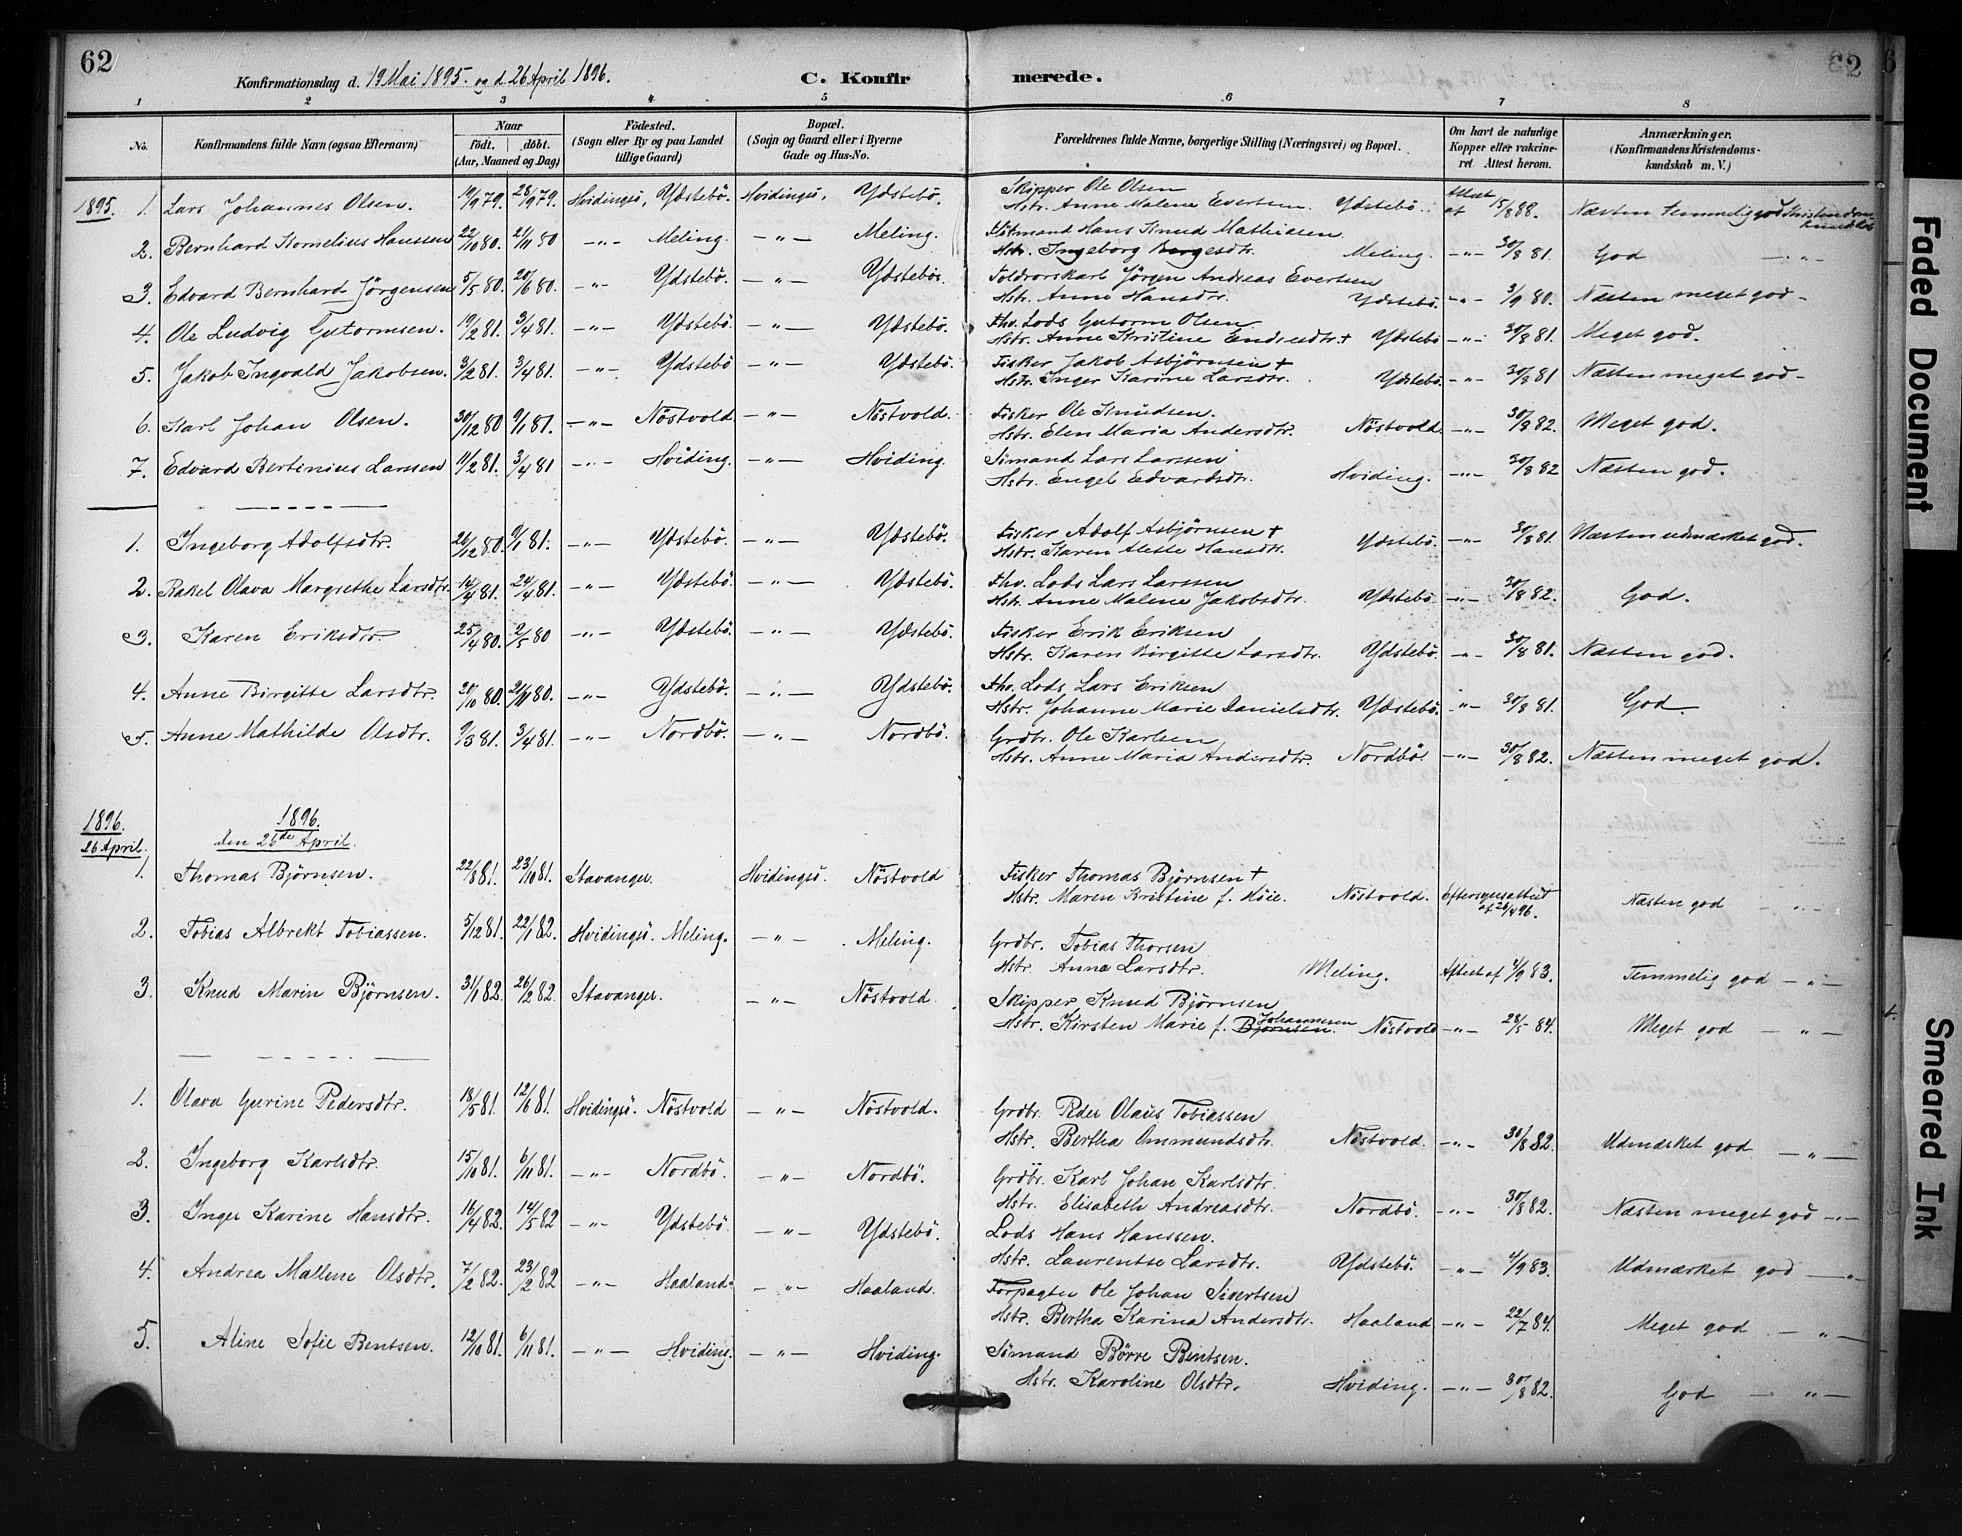 62
Konfirmationsdag d. 19 Mai 1895. og d. 26 April 1896.
C. Konfirmerede.
62
6
1 2 3 4 5 6 7 8
No.
Konfirmandens fulde Navn (ogsaa Efternavn)
Naar
født. døbt.
(Aar, Maaned og Dag)
Fødested.
(Sogn eller By og paa Landet
tillige Gaard)
Bopæl.
(Sogn og Gaard eller i Byerne
Gade og Hus-No.
Forældrenes fulde Navne, borgerlige Stilling (Næringsvei) og Bopæl.
Om havt de naturlige
Kopper eller vakcine-
ret Attest herom.
Anmærkninger.
(Konfirmandens Kristendoms-
kundskab m. V.)
1895. 1. Lars Johannes Olsen. 19/9 79. 28/9 79. Hvidingsö, Ydstebö. Hvidingsö, Ydstebö. Skipper Ole Olsen
Hstr. Anne Malene Evertsen. Ydstebö. Attest af 15/8 88. Næsten temmelig god Kristendoms
2. Bernhard Kornelius Hanssen 22/10 80. 21/11 80 -"- Meling. -"- Meling. Hans Knud Mathiasen
Hstr. Ingeborg Bergesdtr. Meling. -"- 30/8 81. God -"-
3. Edvard Bernhard Jörgensen 5/5 80. 20/6 80. -"- Ydstebö -"- Ydstebö. Toldrorskarl Jörgen Andreas Evertsen
Hstr. Anne Hansdtr. Ydstebö. -"- 3/9 80. Næsten meget god -
4. Ole Ludvig Gutormsen. 19/2 81. 3/4 81. -"- Ydstebö. -"- Ydstebö. Fhv. Lods Gutorm Olsen
Hstr. Anne Kristine Endresdtr. + Ydstebö -"- 30/8 81. Meget god.
5. Jakob Ingvald Jakobsen. 3/2 81. 3/4 81. -"- Ydstebö -"- Ydstebö. Fisker Jakob Asbjørnsen +
Hstr. Inger Karine Larsdtr. Ydstebö. -"- 30/8 81 Næsten meget god -
6. Karl Johan Olsen. 30/12 80 9/1 81. -"- Nöstvold -"- Nöstvold. Fisker Ole Knudsen.
Hstr. Elen Maria Andersdtr. Nöstvold -"- 30/8 82. Meget god.
7. Edvard Bertinius Larssen 11/2 81. 3/4 81 -"- Hviding. -"- Hviding. Sömand Lars Larssen
Hstr. Engel Edvardsdtr. Hviding. -"- 30/8 82 Næsten god.
1. Ingeborg Adolfsdtr. 26/12 80. 9/1 81. -"- Ydstebö. -"- Ydstebö. Fisker Adolf Asbjørnsen +
Hstr. Karen Hansdtr. Ydstebö. -"- 30/8 81. Næsten udmærket god.
2. Rakel Olava Margrethe Larsdtr. 14/4 81. 24/4 81. -"- Ydstebö. -"- Ydstebö. Fhv. Lods Lars Larssen
Hstr. Anne Malene Jakobsdtr. Ydstebö. -"- 30/8 82. God.
3. Karen Eriksdtr. 25/4 80. 2/5 80 -"- Ydstebö. -"- Ydstebö. Fisker Erik Eriksen
Hstr. Karen Birgitte Larsdtr. Ydstebö. -"- 30/8 81. Næsten god.
4. Anne Birgitte Larsdtr. 20/10 80. 21/11 80. -"- Ydstebö. -"- Ydstebö. Fhv. Lods Lars Eriksen
Hstr. Johanne Marie Danielsdtr. Ydstebö. -"- 30/8 81. God.
5. Anne Mathilde Olsdtr. 9/3 81. 3/4 81. -"- Nordbö. -"- Nordbö. Grdbr. Ole Karlsen
Hstr. Anne Maria Andersdtr. Nordbö -"- 30/8 82. Næsten meget god.
1896. 1896.
26 April. den 26de April.
1. Thomas Björnsen. 22/8 81. 23/10 81. Stavanger. Hvidingsö. Nöstvold Fisker Thomas Björnsen +
Hstr. Maren Kristine f. Höie. Nöstvold. Eftersynsattest af 26/4 96. Næsten god -"-
2. Tobias Albrekt Tobiassen. 5/12 81. 22/1 82. Hvidingsö. Meling. -"- Meling. Grdbr. Tobias Thorsen
Hstr. Anna Larsdtr. Meling. Attest af 4/9 83. Temmelig god -"-
3. Knud Marin Björnsen. 31/1 82. 26/2 82. Stavanger. -"- Nöstvold. Skipper Knud Björnsen
Hstr. Kirsten Marie f. Björnsen. Johannesen Nöstvold -"- 28/5 84. Meget god -"-
1. Olava Gurine Pedersdtr. 18/5 81. 12/6 81. Hvidingsö. Nöstvold -"- Nöstvold. Grdbr. Peder Olaus Tobiassen
Hstr. Bertha Ommundsdtr. Nöstvold. -"- 30/8 82. Udmærket god -"-
2. Ingeborg Karlsdtr. 15/10 81. 6/11 81. -"- Nordbö. -"- Nordbö. Grdbr. Karl Johan Karlsdtr.
Hstr. Elisabeth Andreasdtr. Nordbö. -"- 30/8 82. Næsten meget god -"-
3. Inger Karine Hansdtr. 16/4 82. 14/5 82 -"- Ydstebö. -"- Ydstebö. Lods Hans Hanssen.
Hstr. Laurentse Larsdtr. Ydstebö. -"- 4/9 83. Udmærket god -"-
4. Andrea Mallene Olsdtr. 7/2 82. 23/2 82 -"- Haaland. -"- Haaland. Forpagter Ole Johan Sivertsen
Hstr. Bertha Karina Andersdtr. Haaland -"- 22/7 84. Meget god -"-
5. Aline Sofie Bentsen. 12/10 81. 6/11 81. -"- Hviding. -"- Hviding. Sömand Börre Bentsen.
Hstr. Karoline Olsdtr. Hviding. -"- 30/8 82. God -"-
Faded Document
Smeared Ink